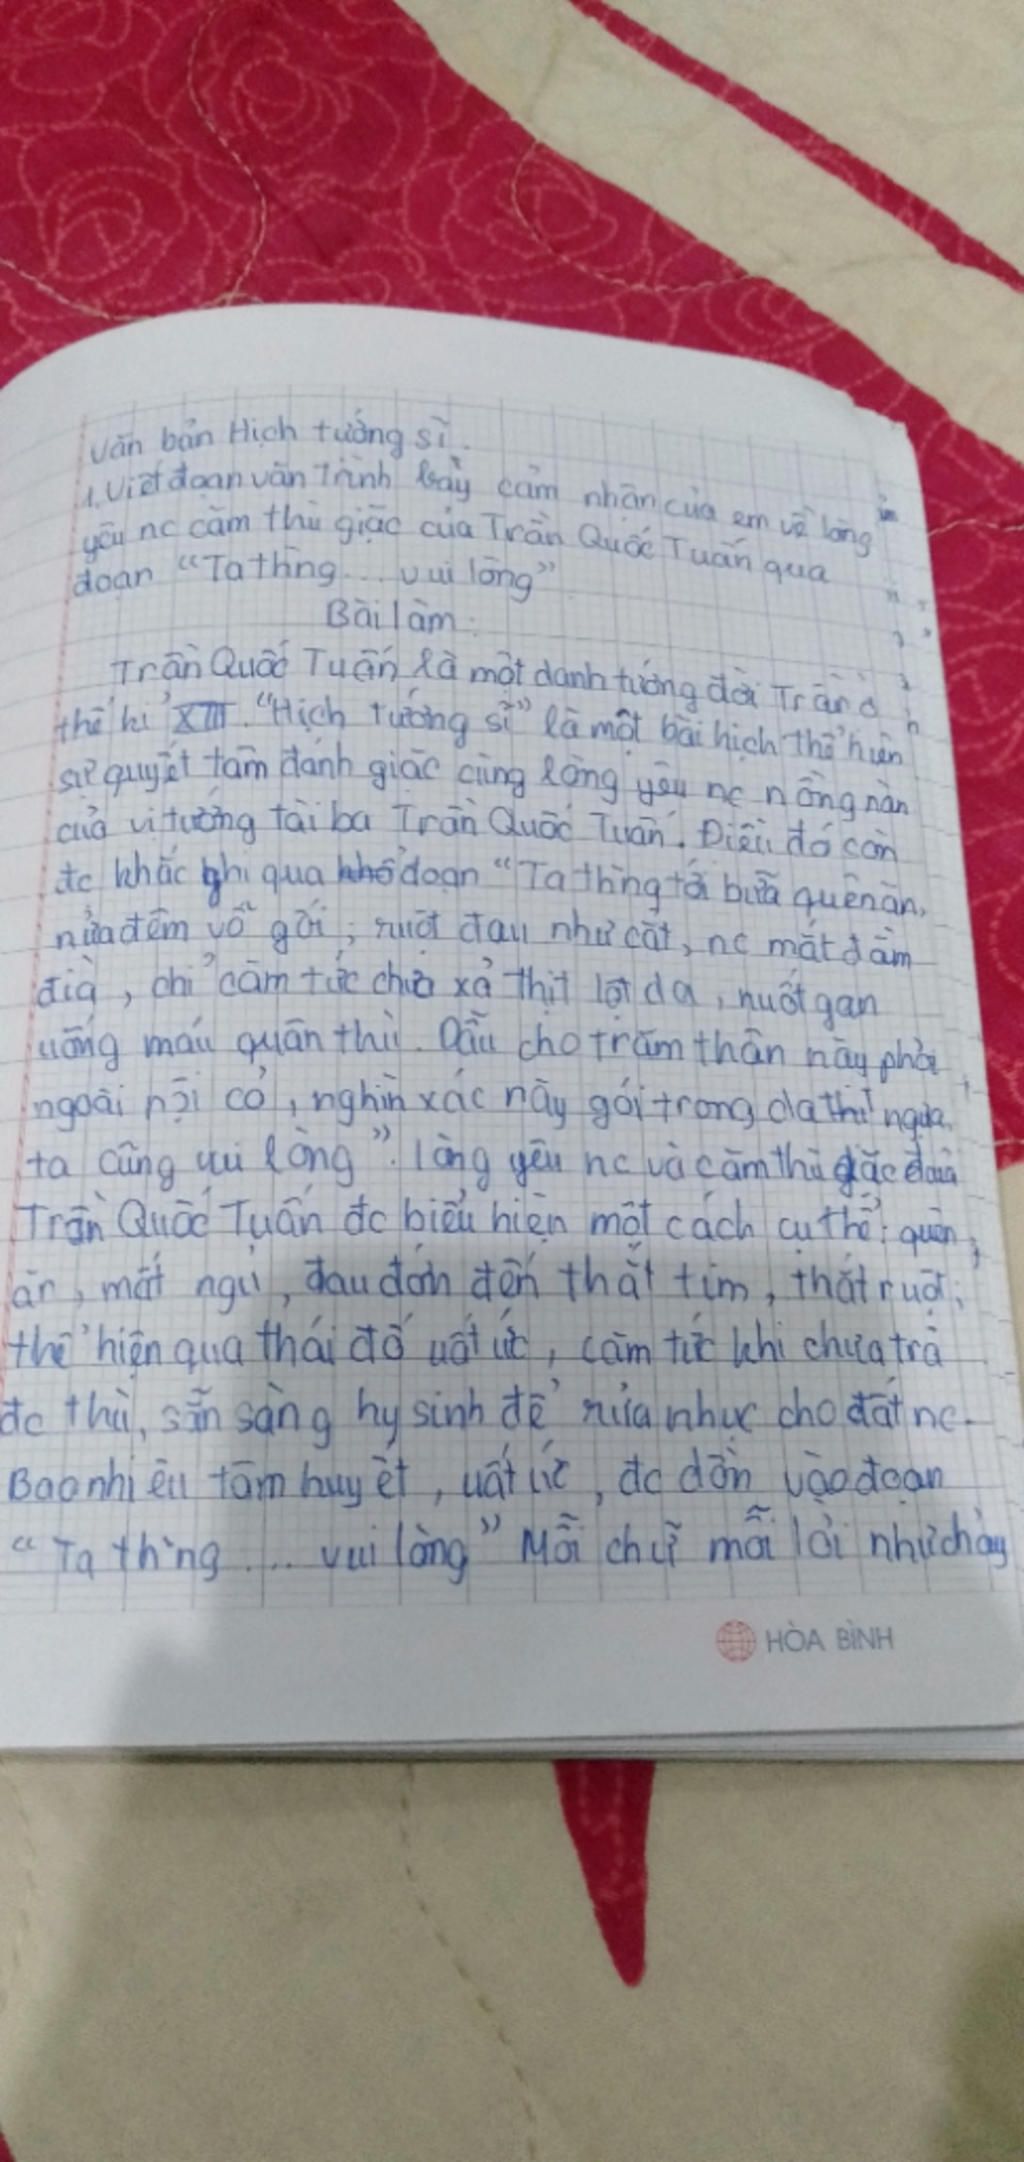 Văn bản Hịch tướng sĩ.
1. Viết đoạn văn Trình bày cảm nhận của em về lòng
yêu nc căm thù giặc của Trần Quốc Tuấn qua
đoạn "Ta thường ... vui lòng"
Bài làm:
Trần Quốc Tuấn là một danh tướng đời Trần ở
thế kỉ XIII. "Hịch tướng sĩ" là một bài hịch thể hiện
sự quyết tâm đánh giặc cùng lòng yêu nc nồng nàn
của vị tướng tài ba Trần Quốc Tuấn. Điều đó còn
đc khắc ghi qua đoạn "Ta thừng tới bữa quên ăn,
nửa đêm vỗ gối; ruột đau như cắt, nc mắt đầm
đìa, chỉ căm tức chưa xả thịt lột da, nuốt gan
uống máu quân thù. Dẫu cho trăm thân này phơi
ngoài nội cỏ, nghìn xác này gói trong da
ta cũng vui lòng". lòng yêu nc và căm thù giặc của
Trần Quốc Tuấn đc biểu hiện một cách cụ thể: quên
ăn, mất ngủ, đau đớn đến thắt tim, thắt ruột;
thể hiện qua thái độ uất ức, căm tức khi chưa trả
đc thù, sẵn sàng hy sinh để rửa nhục cho đất nc.
Bao nhiêu tâm huyết, uất ức, đc dồn vào đoạn
"Ta thừng .... vui lòng" Mỗi chữ mỗi lời như chảy
HÒA BÌNH